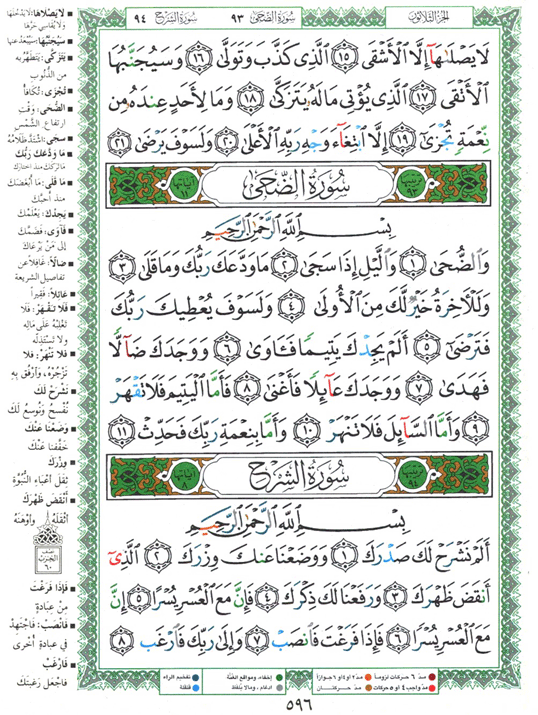 الجزء الثلاثون
سورة الضحى ٩٣
سورة الشرح ٩٤
لَا يَصْلَىٰهَآ إِلَّا ٱلْأَشْقَى ١٥ ٱلَّذِى كَذَّبَ وَتَوَلَّىٰ ١٦ وَسَيُجَنَّبُهَا
ٱلْأَتْقَى ١٧ ٱلَّذِى يُؤْتِى مَالَهُۥ يَتَزَكَّىٰ ١٨ وَمَا لِأَحَدٍ عِندَهُۥ مِن
نِّعْمَةٍ تُجْزَىٰٓ ١٩ إِلَّا ٱبْتِغَآءَ وَجْهِ رَبِّهِ ٱلْأَعْلَىٰ ٢٠ وَلَسَوْفَ يَرْضَىٰ ٢١
ترتيبها ٩٣ سُورَةُ الضُّحَىٰ آياتها ١١
بِسْمِ ٱللَّهِ ٱلرَّحْمَٰنِ ٱلرَّحِيمِ
وَٱلضُّحَىٰ ١ وَٱلَّيْلِ إِذَا سَجَىٰ ٢ مَا وَدَّعَكَ رَبُّكَ وَمَا قَلَىٰ ٣
وَلَلْأَخِرَةُ خَيْرٌ لَّكَ مِنَ ٱلْأُولَىٰ ٤ وَلَسَوْفَ يُعْطِيكَ رَبُّكَ
فَتَرْضَىٰٓ ٥ أَلَمْ يَجِدْكَ يَتِيمًا فَـَٔاوَىٰ ٦ وَوَجَدَكَ ضَآلًّا
فَهَدَىٰ ٧ وَوَجَدَكَ عَآئِلًا فَأَغْنَىٰ ٨ فَأَمَّا ٱلْيَتِيمَ فَلَا تَقْهَرْ
٩ وَأَمَّا ٱلسَّآئِلَ فَلَا تَنْهَرْ ١٠ وَأَمَّا بِنِعْمَةِ رَبِّكَ فَحَدِّثْ ١١
ترتيبها ٩٤ سُورَةُ الشَّرْحِ آياتها ٨
بِسْمِ ٱللَّهِ ٱلرَّحْمَٰنِ ٱلرَّحِيمِ
أَلَمْ نَشْرَحْ لَكَ صَدْرَكَ ١ وَوَضَعْنَا عَنكَ وِزْرَكَ ٢ ٱلَّذِىٓ
أَنقَضَ ظَهْرَكَ ٣ وَرَفَعْنَا لَكَ ذِكْرَكَ ٤ فَإِنَّ مَعَ ٱلْعُسْرِ يُسْرًا ٥ إِنَّ
مَعَ ٱلْعُسْرِ يُسْرًا ٦ فَإِذَا فَرَغْتَ فَٱنصَبْ ٧ وَإِلَىٰ رَبِّكَ فَٱرْغَب ٨
لا يَصْلاها: لا يَدْخُلُها
ولا يُقاسي حَرَّها
سَيُجَنَّبُها: سَيُبْعَدُ عنها
يَتَزَكَّى: يَتَطَهَّرُ به
من الذُّنوبِ
تُجْزَى: تُكافَأُ
الضُّحَى: وَقْتِ
ارتفاعِ الشَّمْسِ
سَجَى: اشْتَدَّ ظَلامُهُ
ما وَدَّعَكَ رَبُّكَ
ما تركك منذ اختارك
ما قَلَى: ما أَبْغَضَكَ
منذ أَحَبَّكَ
يَجِدْكَ: يَعْلَمْكَ
فَآوَى: فَضَمَّكَ
إلى مَنْ يَرْعَاكَ
ضالاً: غافِلاً عن
تفاصيلِ الشريعة
عائِلاً: فَقيراً
فَلا تَقْهَرْ: فَلا
تَغْلِبْهُ على مَالِهِ
ولا تَسْتَذِلَّه
فَلا تَنْهَرْ: فلا
تَزْجُرْهُ، وارْفُقْ بِهِ
نَشْرَحْ لَكَ
نُفْسِحْ ونُوسِعْ لَكَ
وَضَعْنا عَنْكَ
خَفَّفْنا عَنْكَ
وِزْرَكَ
ثِقَلَ أَعْباءِ النُّبُوَّةِ
أَنْقَضَ ظَهْرَكَ
أَثْقَلَهُ وَأَوْهَنَهُ
الحزب
٦٠
فَإِذا فَرَغْتَ
مِنْ عِبادَةٍ
فَانْصَبْ: فَاجْتَهِدْ
في عبادةٍ أُخْرى
فَارْغَبْ
فاجْعَلْ رَغْبَتَكَ
مدّ ٦ حركات لزوماً
مدّ ٢ أو ٤ أو ٦ جوازاً
إخفاء، ومواقع الغنّة
تفخيم الراء
مدّ واجب ٤ أو ٥ حركات
مدّ حركتان
ادغام، وما لا يُلفظ
قلقلة
٥٩٦